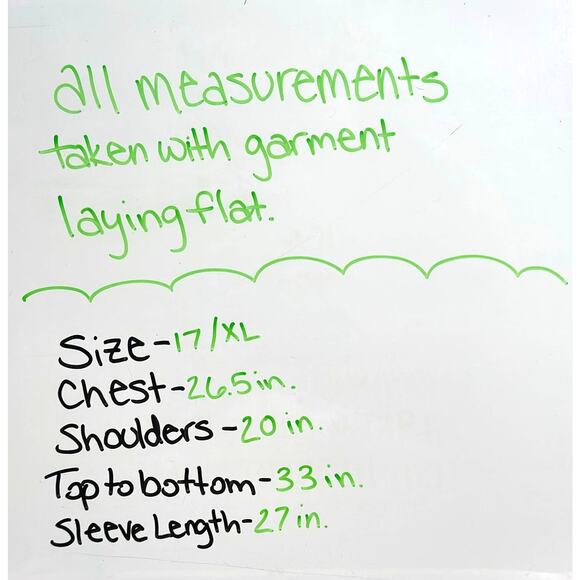 all measurements
taken with garment
laying flat.
Size-17/XL
Chest-26.5in.
Shoulders-20 in.
Top to bottom-33 in.
Sleeve Length-27 in.